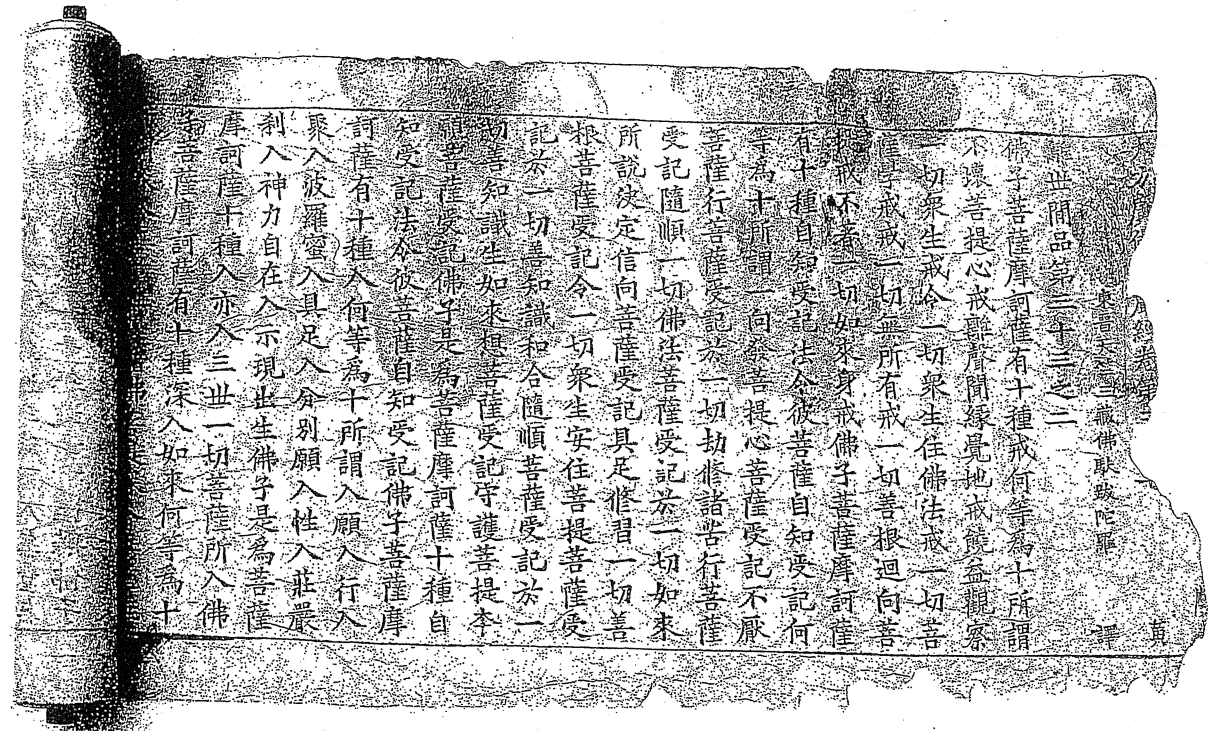 大方廣佛 嚴經卷第 黄
東晉天竺三藏佛馱跋陀羅 譯
離世間品第三十三之二
佛子菩薩摩訶薩有十種戒何等為十所謂
不壞菩提心戒離聲聞緣覺地戒饒益觀察
一切衆生戒令一切衆生住佛法戒一切菩
薩學戒戒一切無所有戒一切善根迴向菩
提戒不著一切如來身戒佛子菩薩摩訶薩
有十種自知受記法令彼菩薩自知受記何
等為十所謂一向發菩提心菩薩受記不厭
菩薩行菩薩受記於一切劫修諸苦行菩薩
受記隨順一切佛法菩薩受記於一切如來
所說決定信向菩薩受記具足修習一切善
根菩薩受記令一切衆生安住菩提菩薩受
記於一切善知識和合隨順菩薩受記於一
切善知識生如來想菩薩受記守護菩提本
願菩薩受記佛子是為菩薩摩訶薩十種自
知受記法令彼菩薩自知受記佛子菩薩摩
訶薩有十種入何等為十所謂入願入行入
聚入波羅蜜入具足入分別願入性入莊嚴
刹入神力自在入示現出生佛子是為菩薩
摩訶薩十種入亦入三世一切菩薩所入佛
子菩薩摩訶薩有十種深入如來何等為十